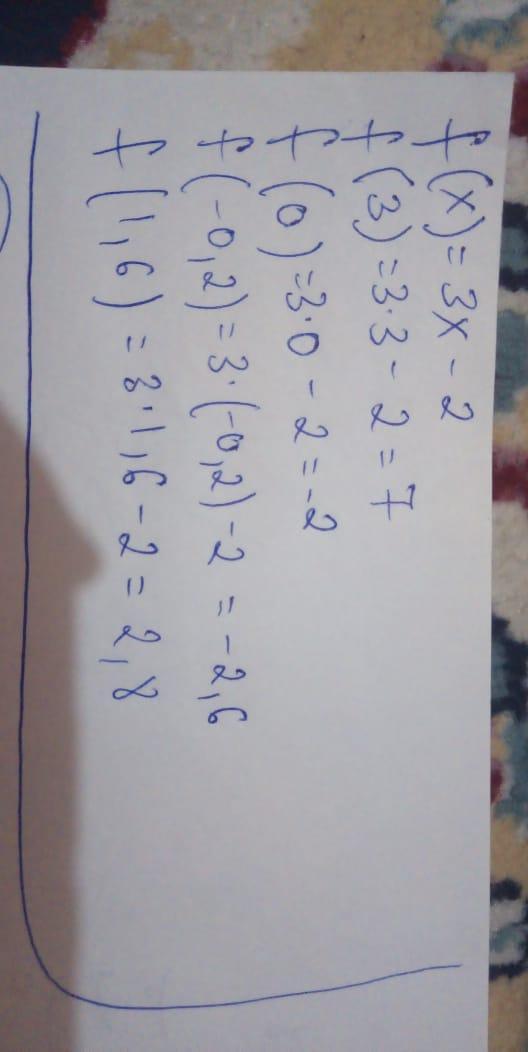 f(x)=3x-2
f(3)=3·3-2=7
f(0)=3·0-2=-2
f(-0,2)=3·(-0,2)-2=-2,6
f(1,6)=3·1,6-2=2,8